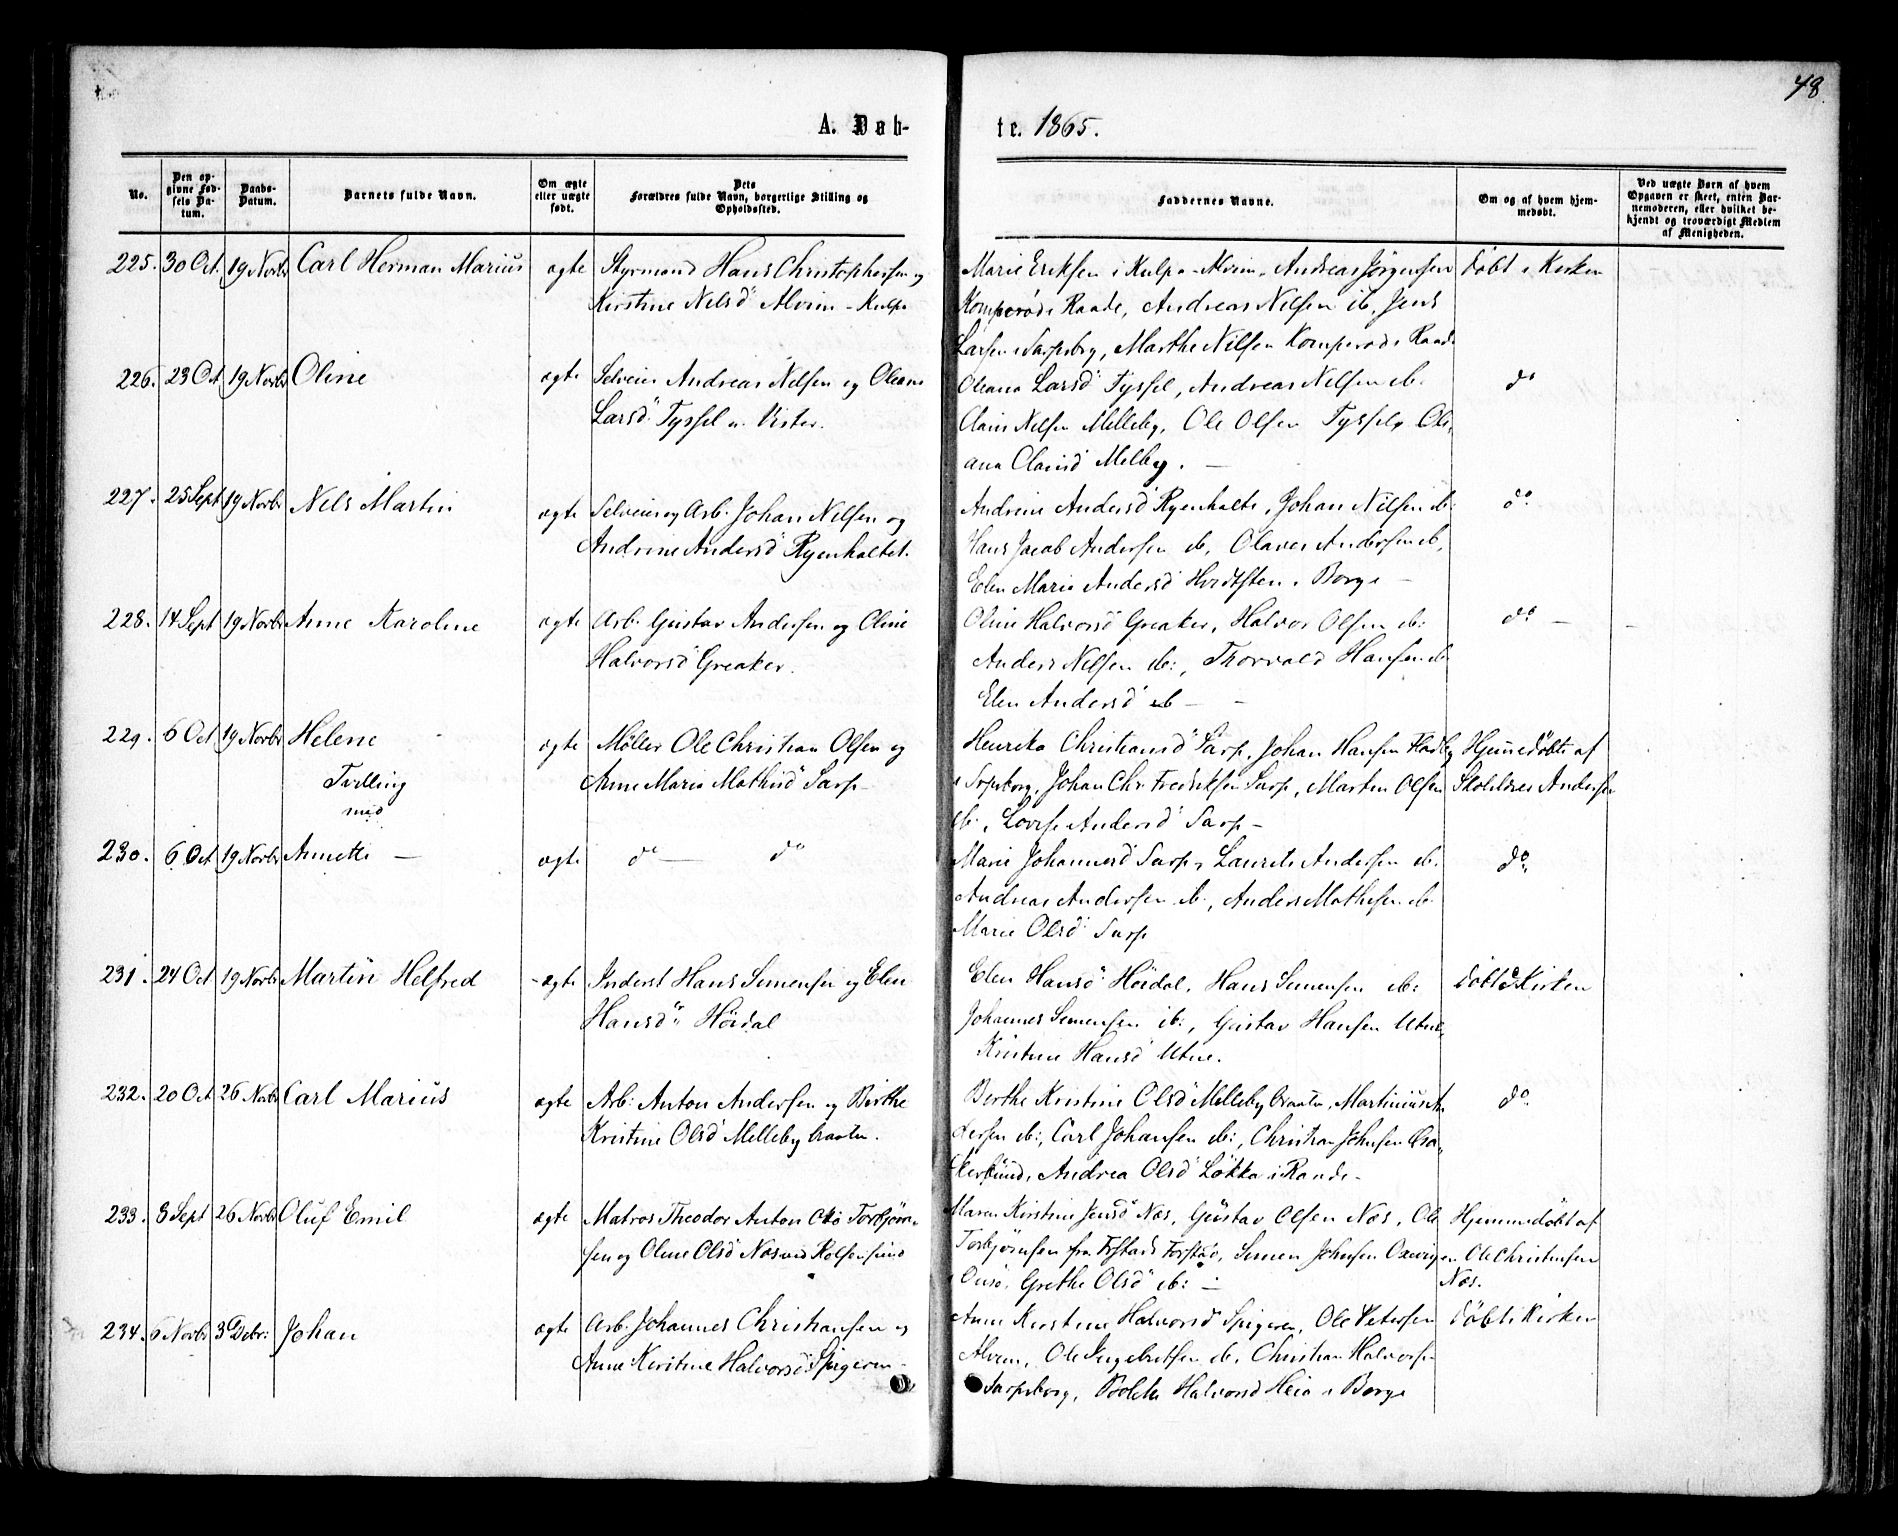 48.
A. Døb-
te. 1865.
No.
Den op-
givne Fød-
sels Da-
tum.
Daabs-
Datum.
Barnets fulde Navn.
Om ægte
eller uægte
født.
Dets
Forældres fulde Navn, borgerlige Stilling og
Opholdssted.
Faddernes Navne.
Om og af hvem hjem-
medøbt.
Ved uægte Børn af hvem
Opgaven er skeet, enten Bar-
nemoderen, eller hvilket be-
kjendt og troværdigt Medlem
af Menigheden.
225. 30 Oct. 19 Novbr Carl Herman Marius ægte Styrmand Hans Christophersen og
Kirstine Nelsd Alvim - Kulpe
Marie Eriksen i Kulpe Alvim, Andreas Jørgensen
Komperød i Raade, Andreas Nilsen ib, Jens
Larsen i Sarpsborg, Marthe Nilsen Komperød i Raade
døbt i Kirken
226. 23 Oct 19 Novbr Oline ægte Selveier Andreas Nilsen og Oleane
Larsd Tyssel u. Vister.
Oleana Larsd Tyssel, Andreas Nilsen ib.
Claus Nilsen Melleby, Ole Olsen Tyssel, Ole-
ana Clausd Melby. -
do
227. 25 Sept 19 Novbr Nels Martin ægte Selveier og Arb. Johan Nilsen og
Andrine Andersd Ryenhaltet.
Andrine Andersd Ryenhalte, Johan Nilsen ib:
Hans Jacob Andersen ib, Olaves Andersen ib,
Elen Marie Andersd Hvidtsten i Borge -
do
228. 14 Sept 19 Novbr Anne Karoline ægte Arb. Gustav Andersen og Oline
Halvorsd Greaker.
Oline Halvorsd Greaker, Halvor Olsen ib:
Anders Nilsen ib:, Thorvald Hansen ib
Elen Andersd ib - -
do -
229. 6 Oct 19 Novbr Helene
Tvilling
med
ægte Møller Ole Christian Olsen og
Anne Marie Mathisd Sarp -
Henrika Christiansd Sarp, Johan Hansen
i Sarpsborg, Johan Chr. Fredriksen Sarp, Marten Olsen
ib., Lovise Andersd Sarp -
Hjemmedøbt af
Skolelærer Andersen
230. 6 Oct 19 Novbr Annette - ægte do - do
Marie Johannesd Sarp, Laurits Andersen ib.
Andreas Andersen ib., Anders Mathisen ib
Marie Olsd Sarp
do
231. 24 Oct 19 Novbr Martin Helfred - ægte Inderst Hans Simensen og Elen
Hansd Høidal
Elen Hansd Høidal, Hans Simensen ib:
Johannes Simensen ib:, Gustav Hansen Utne,
Kristine Hansd Utne.
døbt i Kirken
232. 20 Oct 26 Novbr Carl Marius ægte Arb: Anton Andersen og Birthe
Kristine Olsd Melleby braaten.
Berthe Kristine Olsd Melleby braaten, Martinius An-
dersen ib:, Carl Johansen ib:, Christian Johnsen
Andrea Olsd Løkka i Raade -
do
233. 8 Sept 26 Novbr Oluf Emil ægte Matros Theodor Anton Otto Torbjørn-
sen og Oline Olsd Næs ved Rolfsøsund
Maren Kirstine Jensd Næs, Gustav Olsen Næs, Ole
Torbjørnsen fra Fstads Forstad, Simen Johnsen
i Onsø, Grethe Olsd ib: -
Hjemmedøbt af
Ole Christensen
Næs.
234. 6 Novbr 3 Debr: Johan ægte Arb. Johannes Christiansen og
Anne Kirstine Halvorsd Spigeren -
Anne Kirstine Halvorsd Spigeren, Ole Petersen
Alvim, Ole Ingebretsen ib, Christian Halvorsen
Sarpsborg, Halvorsd Heia i Borge
døbt i Kirken